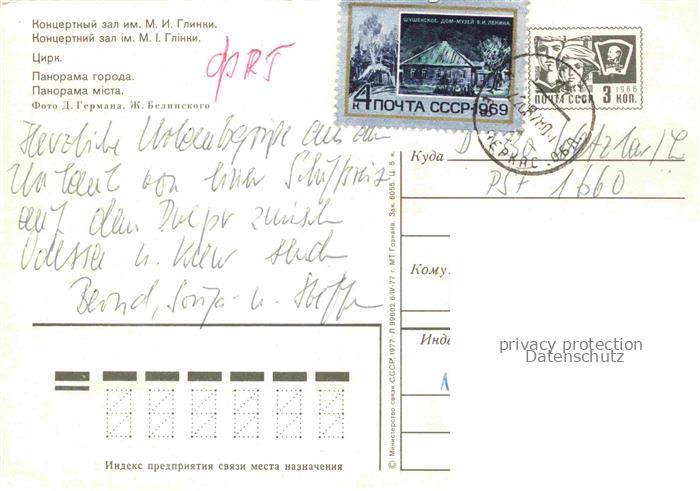 Концертный зал им. М. И. Глинки.
Концертний зал ім. М. І. Глінки.
Цирк.
Панорама города.
Панорама міста.
Фото Д. Германа, Ж. Белинского
ФРГ
ШУШЕНСКОЕ. ДОМ-МУЗЕЙ В.И. ЛЕНИНА.
4 К ПОЧТА СССР·1969
1966
ПОЧТА СССР 3 КОП.
ЧЕРКАС. ОБЛ.
Herzliche Urlaubsgrüße aus dem
Urlaub von einer Schiffsreise
auf dem Dnepr zwischen
Odessa u. Kiew senden
Bernd, Sonja u. Steffen
Куда D
Wetzlar/L
PSF 1660
Кому
Инде
Индекс предприятия связи места назначения
© Министерство связи СССР, 1977 Л 99602 6/IV-77 г. МТ Гознака. Зак. 6055. Ц. 5 к.
privacy protection
Datenschutz